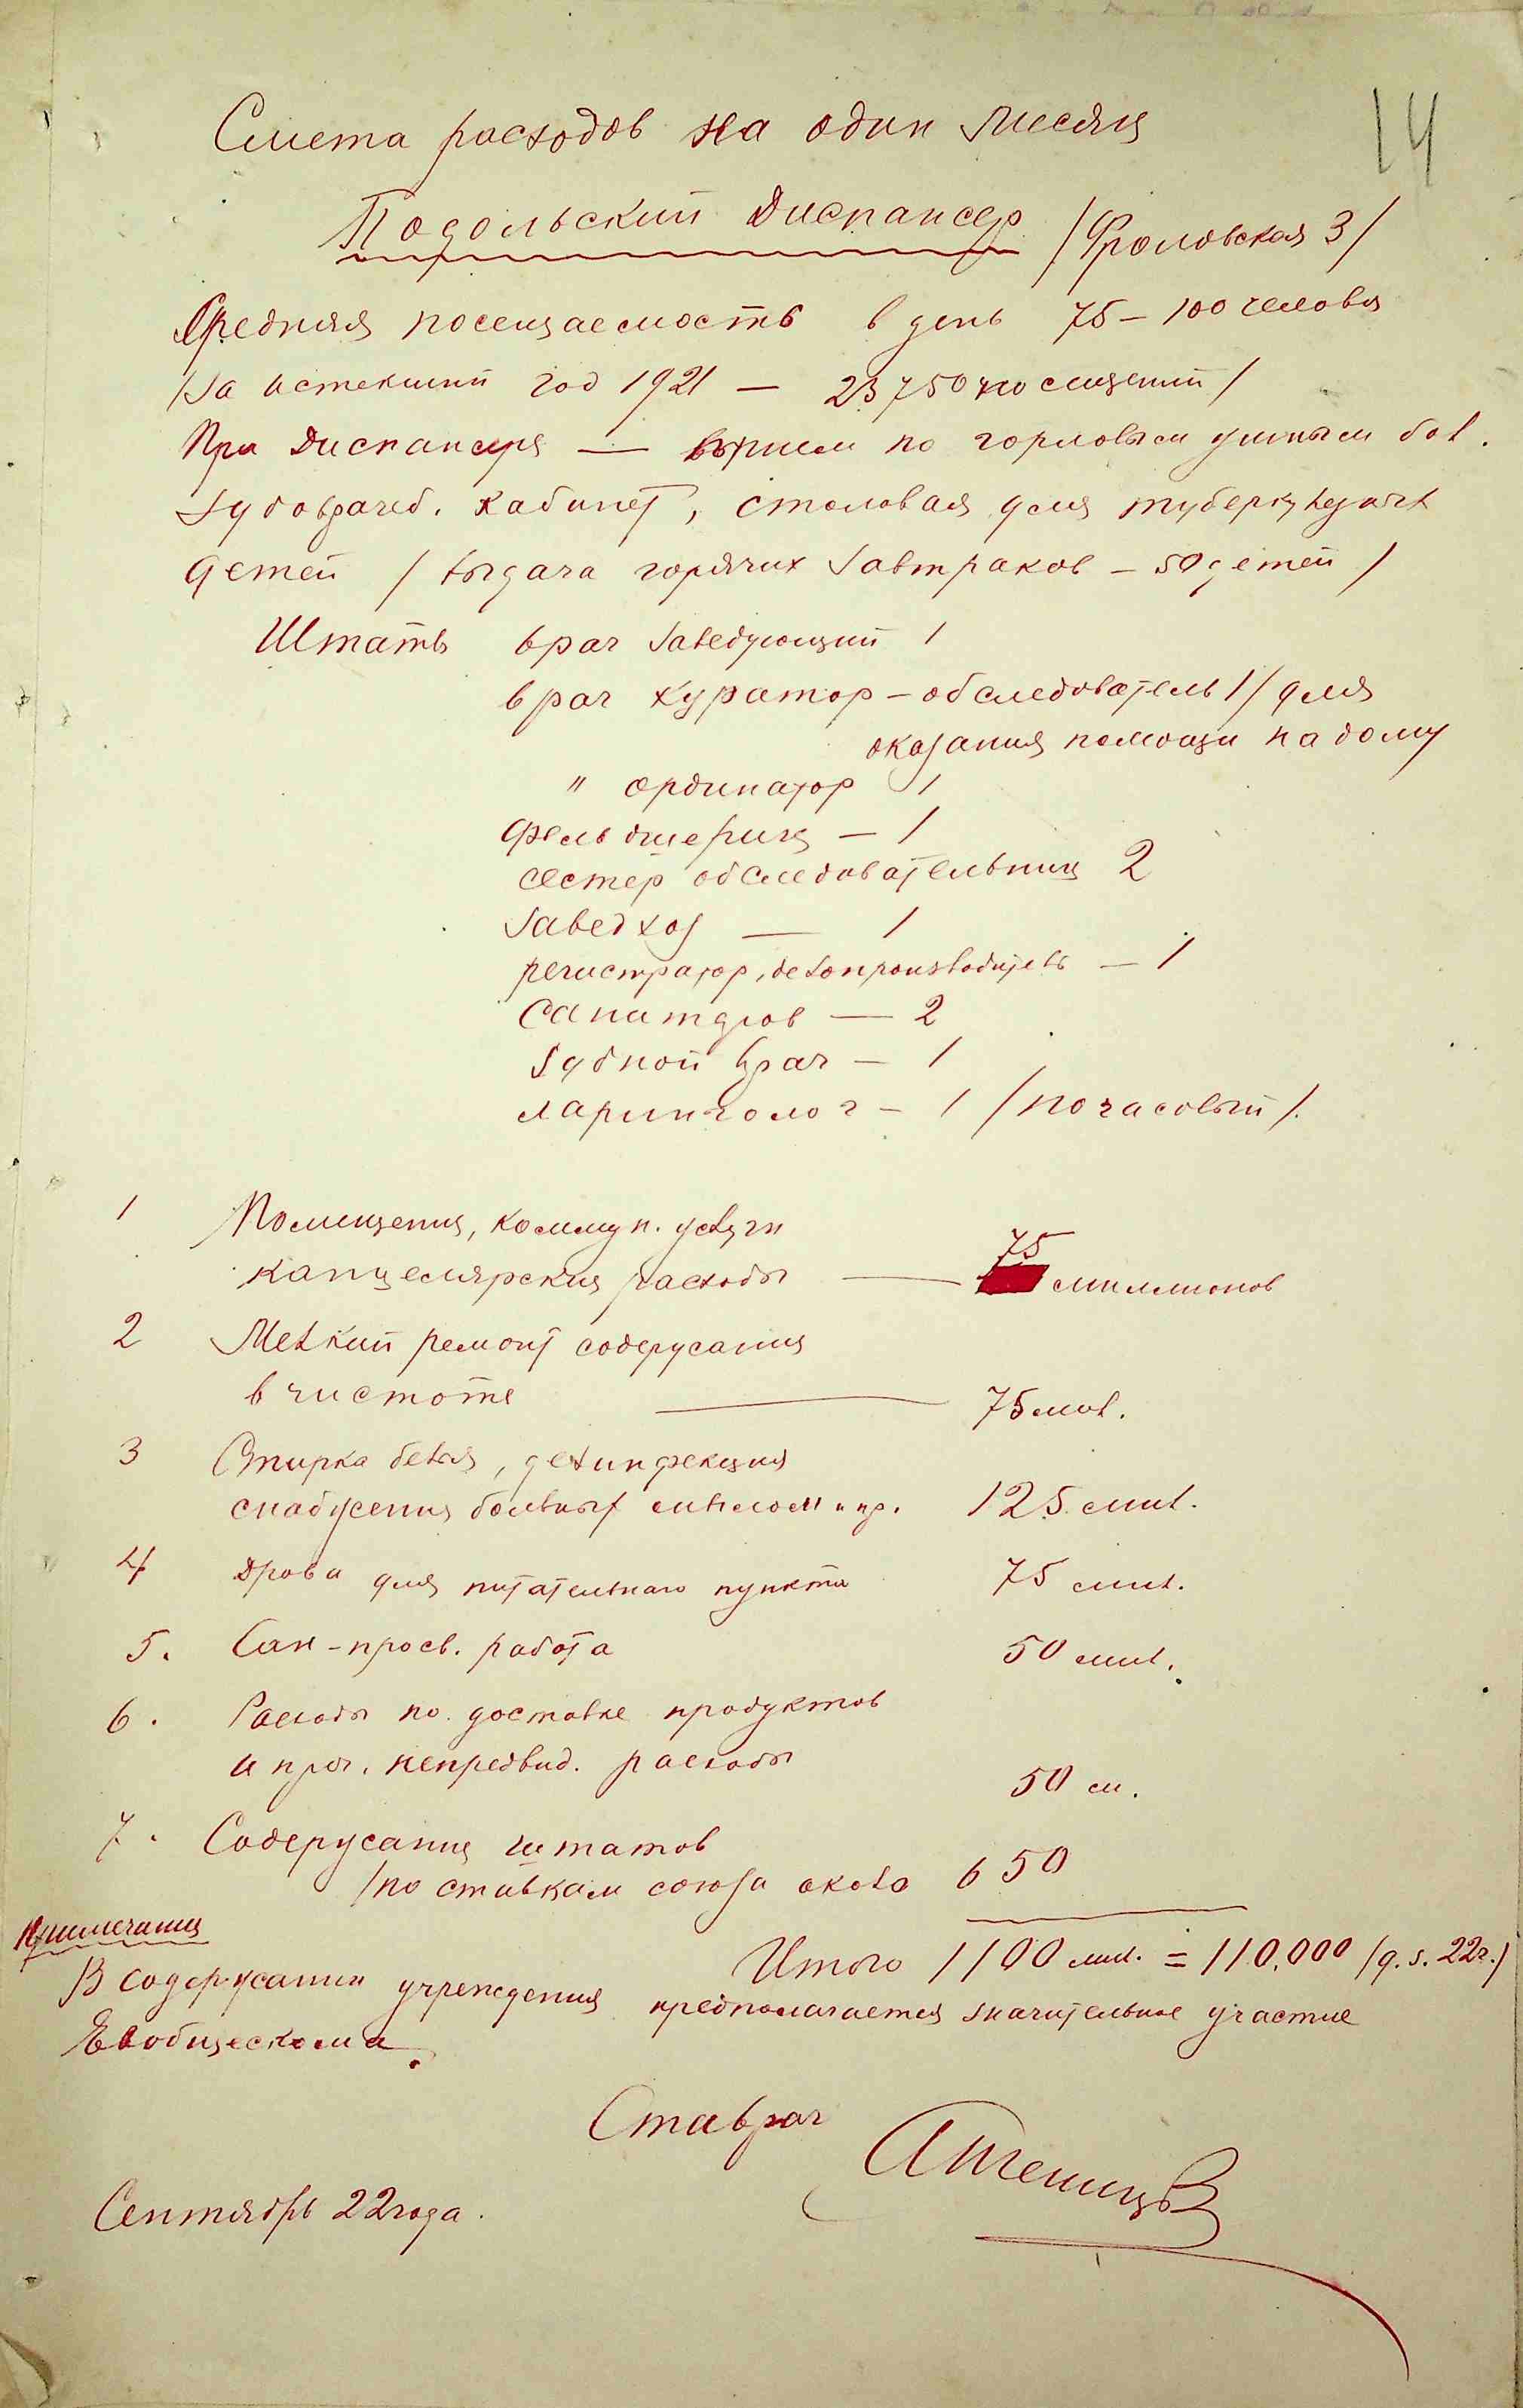 14
Смета расходов на один месяц
Подольский Диспансер /Фроловская 3/
Средняя посещаемость в день 75 – 100 человек
/За истекший год 1921 — 23750 посещений/
При Диспансере — прием по горловым ушным бол.
Зубоврачеб. кабинет, столовая для туберкулезных
детей /выдача горячих завтраков – 50 детей/
Штаты врач Заведующий 1
врач куратор – обследователь 1 / для
оказания помощи на дому
" ординатор 1
Фельдшериц – 1
сестер обследовательниц 2
Заведхоз — 1
регистратор, делопроизводитель – 1
Санитаров — 2
Зубной врач – 1
ларинголог – 1 /почасовый/.
1 Помещения, коммун. услуги
канцелярския расходы — 75 миллионов
2 Мелкий ремонт содержания
в чистоте — 75 мил.
3 Стирка белья, дезинфекция
снабжения больных мылом и пр. 125 мил.
4 Дрова для питательнаго пункта 75 мил.
5. Сан-просв. работа 50 мил.
6. Расходы по доставке продуктов
и проч. непредвид. расходы 50 м.
7. Содержания штатов
/по ставкам союза около 650
Итого 1100 мил. = 110.000 /д.з. 22г./
Примечания
В содержании учреждения предполагается значительное участие
Евобщескома.
Ставрач
Сентябрь 22 года.